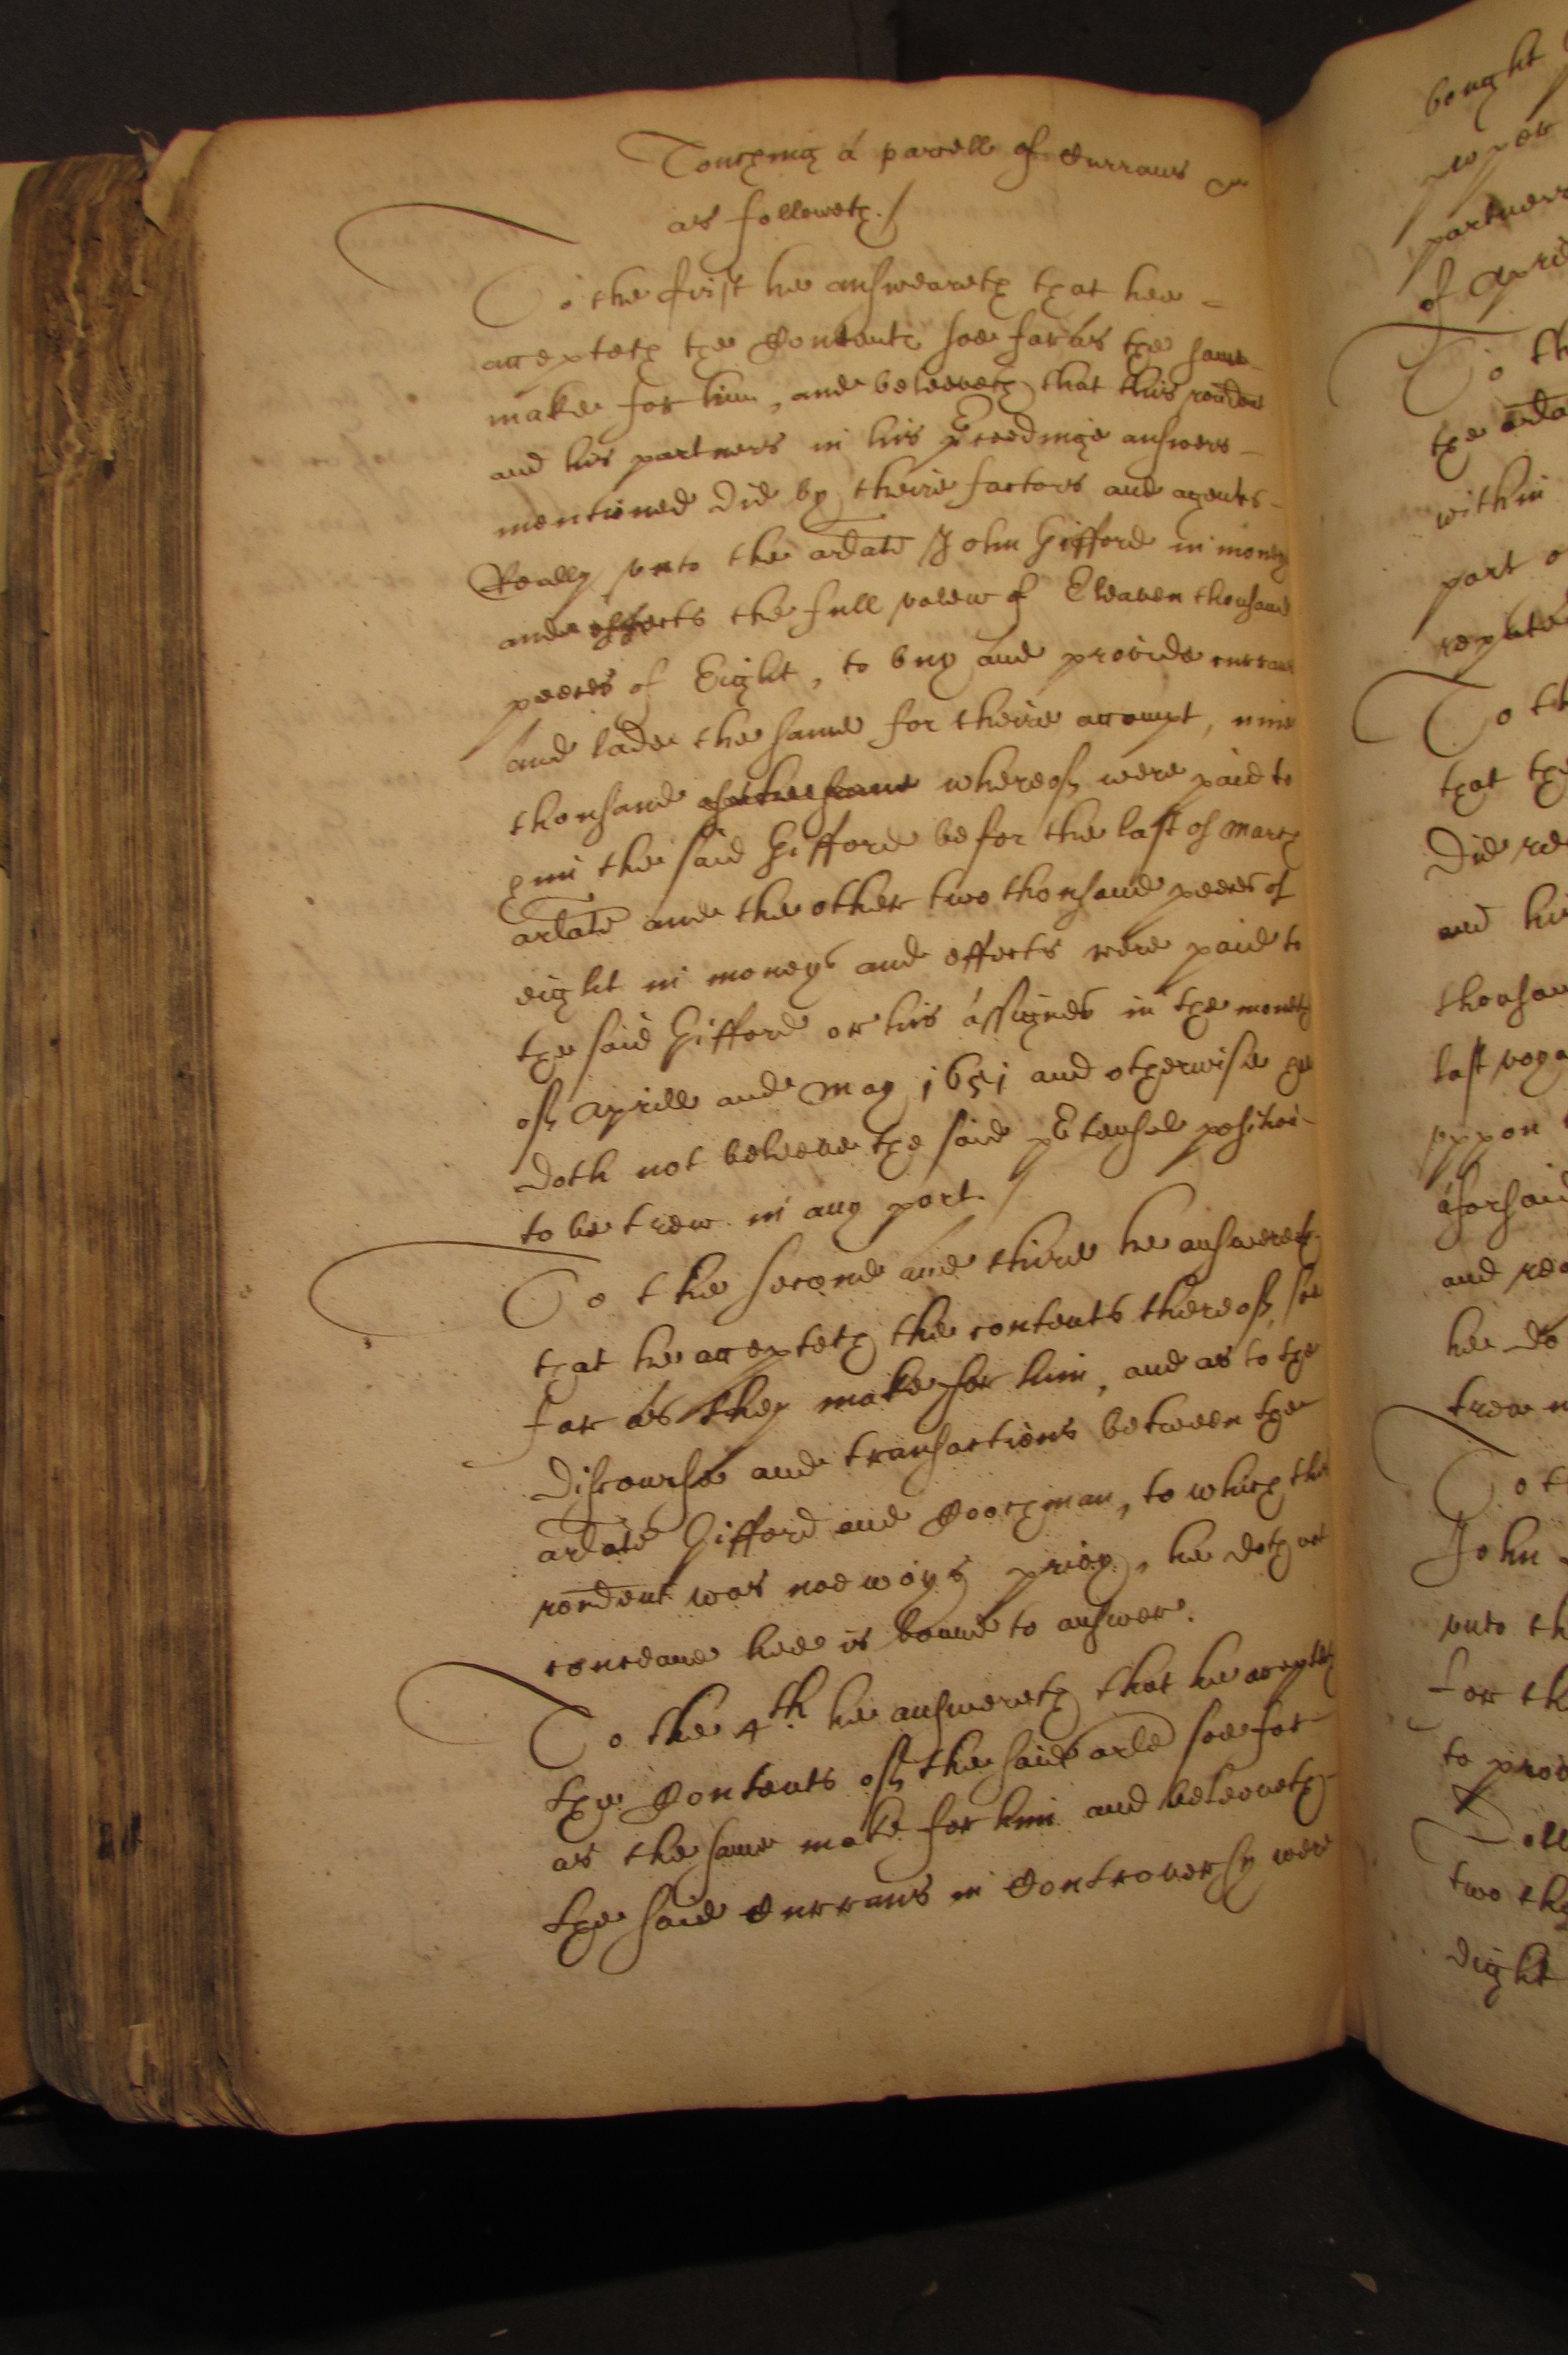 Touching a parcell of Currans
as followeth./
To the first he answeareth that hee -
accepteth the Contents soe far as the same
make for him, and beleeveth that this rendent
and his partners in his preceedinge answers -
mentioned did by theire factors and agents -
Really unto the arlate John Gifford in moneys
and effects the full valew of Eleaven thousand
peeces of Eight, to buy and provide currans
and lade the same for theire accompt, nine
thousand of the same whereof were paid to
him the said Gifford befor the last of March
arlate and the other two thousand peeces of
eight in moneys and effects were paid to
the said Gifford or his assignes in the moneth
of Aprill and May 1651 and otherwise he
doth not beleeve the said pretensed position
to be trew in any part./
To the second and third he answereth
that he accepteth the contents thereof, soe
far as they make for him, and as to the
discourse and transactions between the
arlate Gifford and Coochman, to which this
rendent was noe ways privy, he doth not
conceave hee is bound to answer.
To the 4th he answereth that he accepteth
the Contents of the said arle soe far
as the same make for him and beleeveth -
the said Currans in Controversy were
bought
partners
of Apri
To th
the arla
within
part o
repute
To th
that the
Did re
and his
thousan
last voya
uppon
aforsaid
and rea
he do
trew in
To t
John
unto th
for th
to prov
two tho
Eight